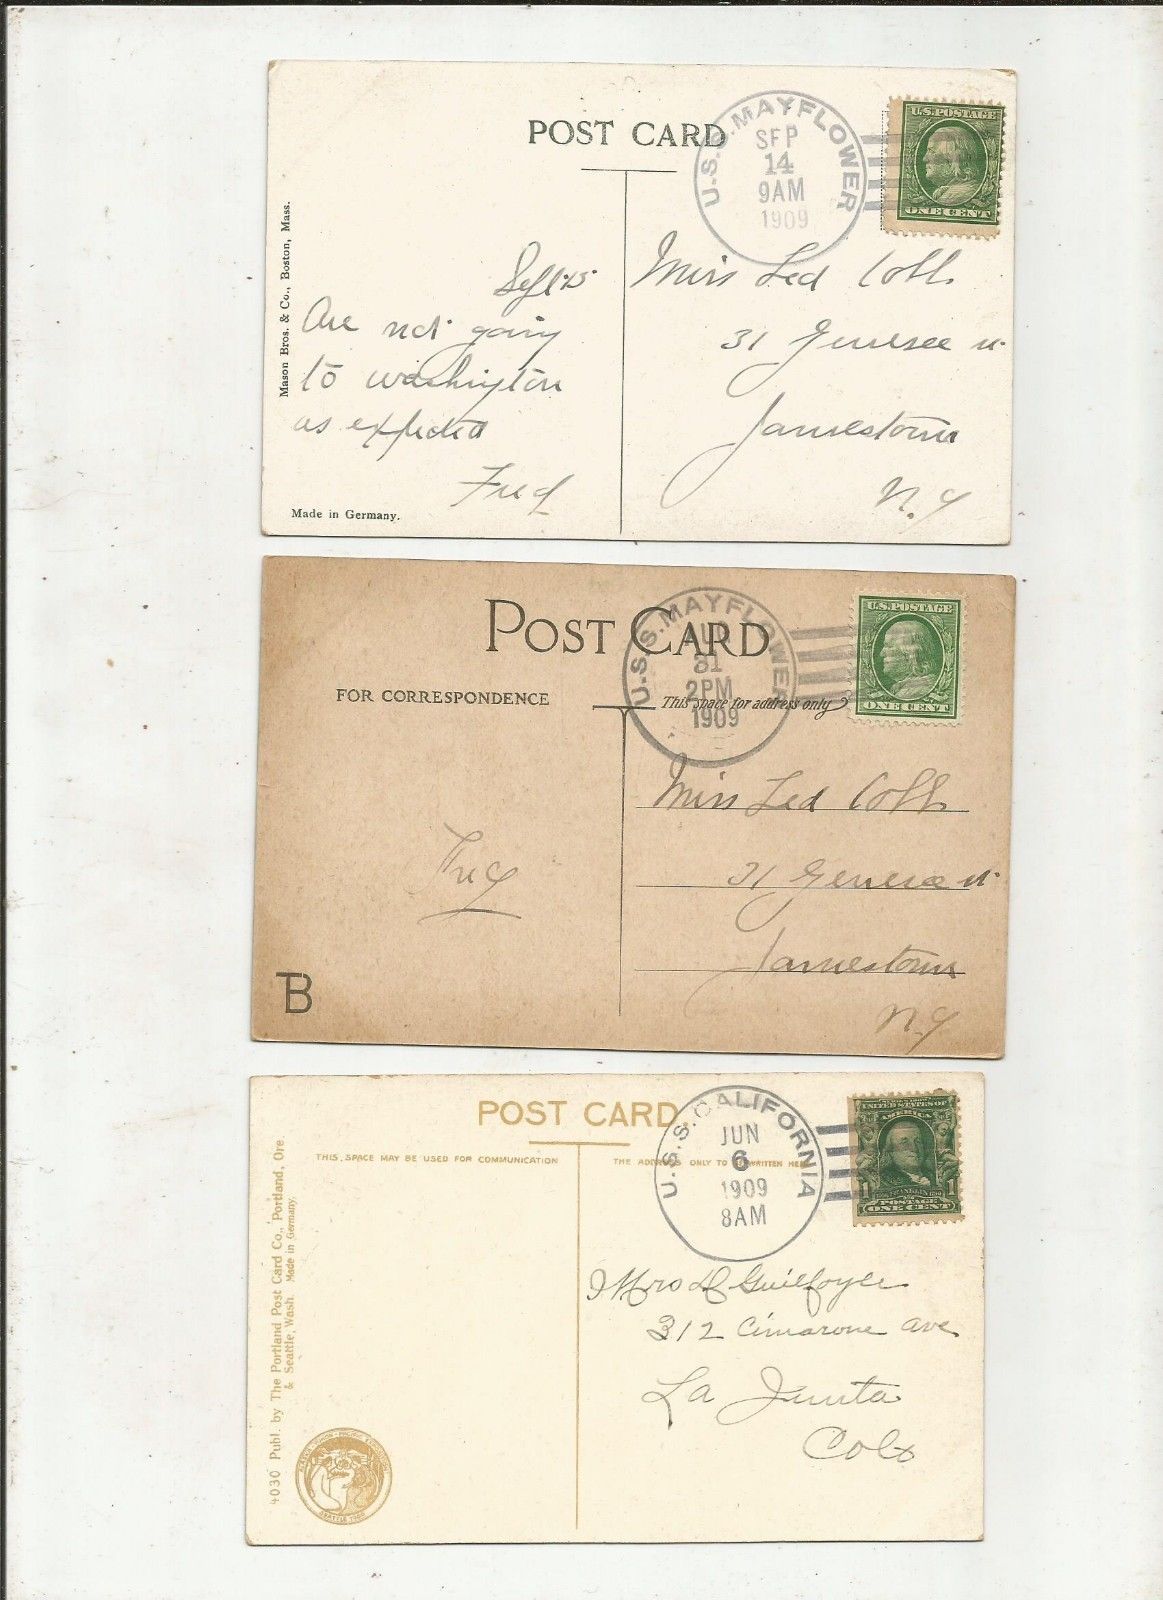 POST CARD
U.S.S. MAYFLOWER
SEP
14
9AM
1909
U.S. POSTAGE
ONE CENT
Mason Bros. & Co., Boston, Mass.
Sept 15
Are not going
to Washington
as expected
Fred
Made in Germany.
Miss Led Cobb
31 Genesee st.
Jamestown
N.Y
POST CARD
U.S.S. MAYFLOWER
AUG
31
2PM
1909
U.S. POSTAGE
ONE CENT
FOR CORRESPONDENCE
This space for address only
Miss Led Cobb
31 Genesee st.
Jamestown
N.Y
Fred
TB
POST CARD.
U.S.S. CALIFORNIA
JUN
6
1909
8AM
UNITED STATES OF
AMERICA
1 1
POSTAGE
ONE CENT
THIS SPACE MAY BE USED FOR COMMUNICATION
THE ADDRESS ONLY TO BE WRITTEN HERE
4030 Publ. by The Portland Post Card Co., Portland, Ore
& Seattle, Wash. Made in Germany.
Mrs D Guilfoyle
312 Cimarone Ave
La Junta
Colo
ALASKA - YUKON - PACIFIC EXPOSITION
SEATTLE 1909